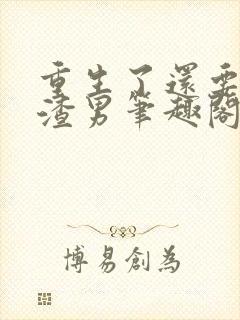 重生了還要
渣男筆趣閣
博易創為